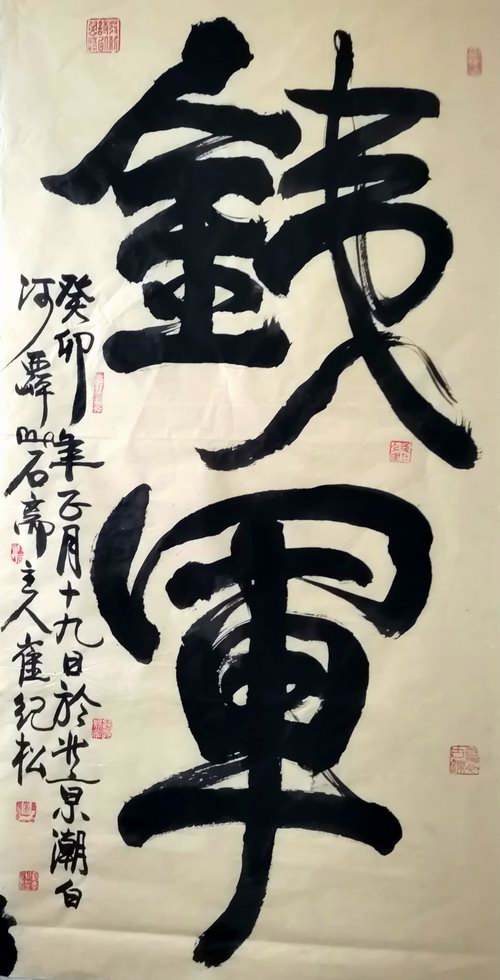 銕軍
癸卯年正月十九日於北京潮白
河畔石齋主人崔紀松